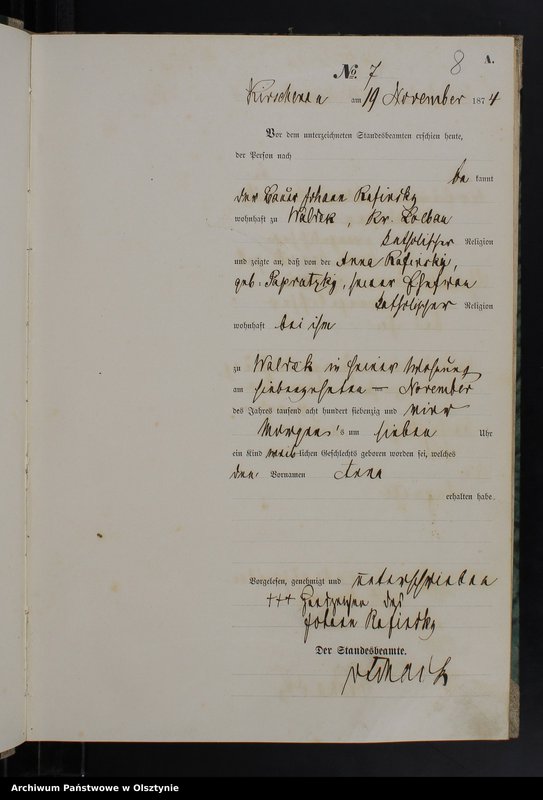 8 A.
No. 7
am 19 November 1874
Vor dem unterzeichneten Standesbeamten erschien heute,
der Person nach
be kannt
der Bauer Johann
wohnhaft zu Waldek, Kr. Loebau
katholischer Religion
und zeigte an, daß von der Anna
geb. seiner Ehefrau
katholischer Religion
wohnhaft bei ihm
zu Waldek in seiner Wohnung
am siebenzehnten November
des Jahres tausend acht hundert siebenzig und vier
Morgens um sieben Uhr
ein Kind weiblichen Geschlechts geboren worden sei, welches
den Vornamen Anna
erhalten habe.
Vorgelesen, genehmigt und unterschrieben
+++ Handzeichen des
Johann
Der Standesbeamte.
Archiwum Państwowe w Olsztynie